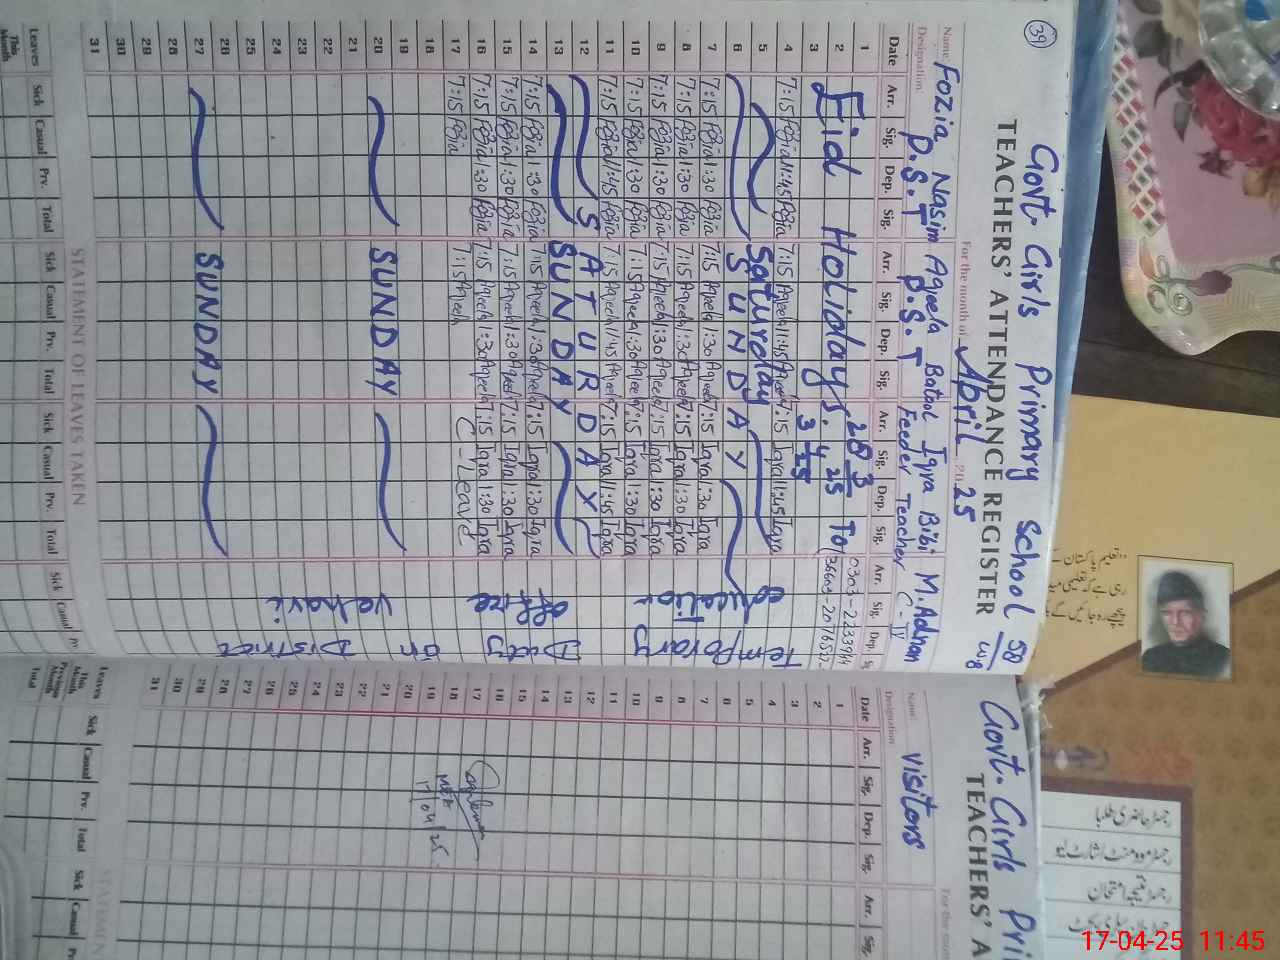 39
Govt. Girls Primary School 58/WB
TEACHERS' ATTENDANCE REGISTER
For the month of April 2025
Name Fozia Nasim Aqeela Batool Iqra Bibi M. Adnan
Designation: P.S.T P.S.T Feeder Teacher C-IV
Date Arr. Sig. Dep. Sig. Arr. Sig. Dep. Sig. Arr. Sig. Dep. Sig. Arr. Sig. Dep.
1
2 Eid Holidays. 28 3 25 To
3 3 4 25
4 7:15 Fozia 11:45 Fozia 7:15 Aqeela 11:45 Aqeela 7:15 Iqra 11:45 Iqra
5 Saturday
6 SUNDAY
7 7:15 Fozia 1:30 Fozia 7:15 Aqeela 1:30 Aqeela 7:15 Iqra 1:30 Iqra
8 7:15 Fozia 1:30 Fozia 7:15 Aqeela 1:30 Aqeela 7:15 Iqra 1:30 Iqra
9 7:15 Fozia 1:30 Fozia 7:15 Aqeela 1:30 Aqeela 7:15 Iqra 1:30 Iqra
10 7:15 Fozia 1:30 Fozia 7:15 Aqeela 1:30 Aqeela 7:15 Iqra 1:30 Iqra
11 7:15 Fozia 11:45 Fozia 7:15 Aqeela 11:45 Aqeela 7:15 Iqra 11:45 Iqra
12 SATURDAY
13 SUNDAY
14 7:15 Fozia 1:30 Fozia 7:15 Aqeela 1:30 Aqeela 7:15 Iqra 1:30 Iqra
15 7:15 Fozia 1:30 Fozia 7:15 Aqeela 1:30 Aqeela 7:15 Iqra 1:30 Iqra
16 7:15 Fozia 1:30 Fozia 7:15 Aqeela 1:30 Aqeela 7:15 Iqra 1:30 Iqra
17 7:15 Fozia 7:15 Aqeela C-Leave
18
19
20 SUNDAY
21
22
23
24
25
26
27 SUNDAY
28
29
30
31
Temporary
education
Duty
office
on
District
Vehari
STATEMENT OF LEAVES TAKEN
Leaves Sick Casual Prv. Total Sick Casual Prv. Total Sick Casual Prv. Total Sick Casual
This Month
Govt. Girls Pri
TEACHERS' A
For the mon
Name: Visitors
Designation
Date Arr. Sig. Dep. Sig. Arr. Sig.
1
2
3
4
5
6
7
8
9
10
11
12
13
14
15
16
17
18
19
20
21
22
23
24
25
26
27
28
29
30
31
17/04/25
STATEMEN
Leaves Sick Casual Prv. Total Sick Casual
This Month
Previous Month
Total
رجسٹر حاضری طلبا
17-04-25 11:45